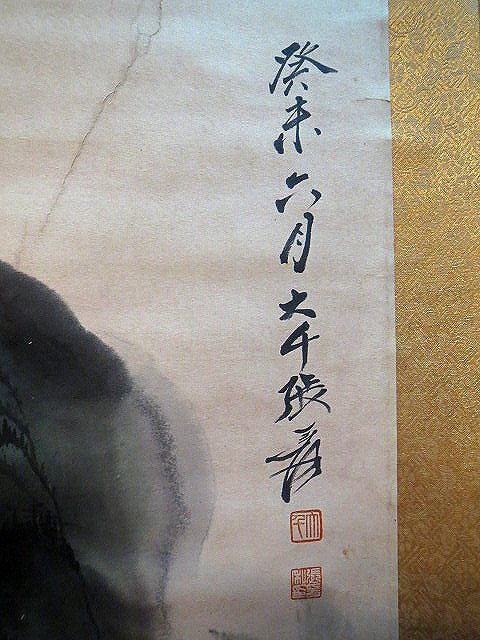 癸未六月大千張爰
大千